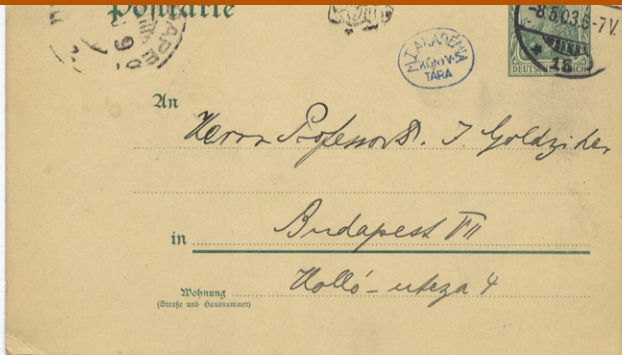 Postkarte
-8.5.03.5-7V.
DEUTSCHES REICH
* 15
M.T. AKADÉMIA
KÖNYV-
TÁRA
An
Herrn Professor Dr. I. Goldziher
in Budapest VII
Holló-utcza 4
Wohnung
(Straße und Hausnummer)